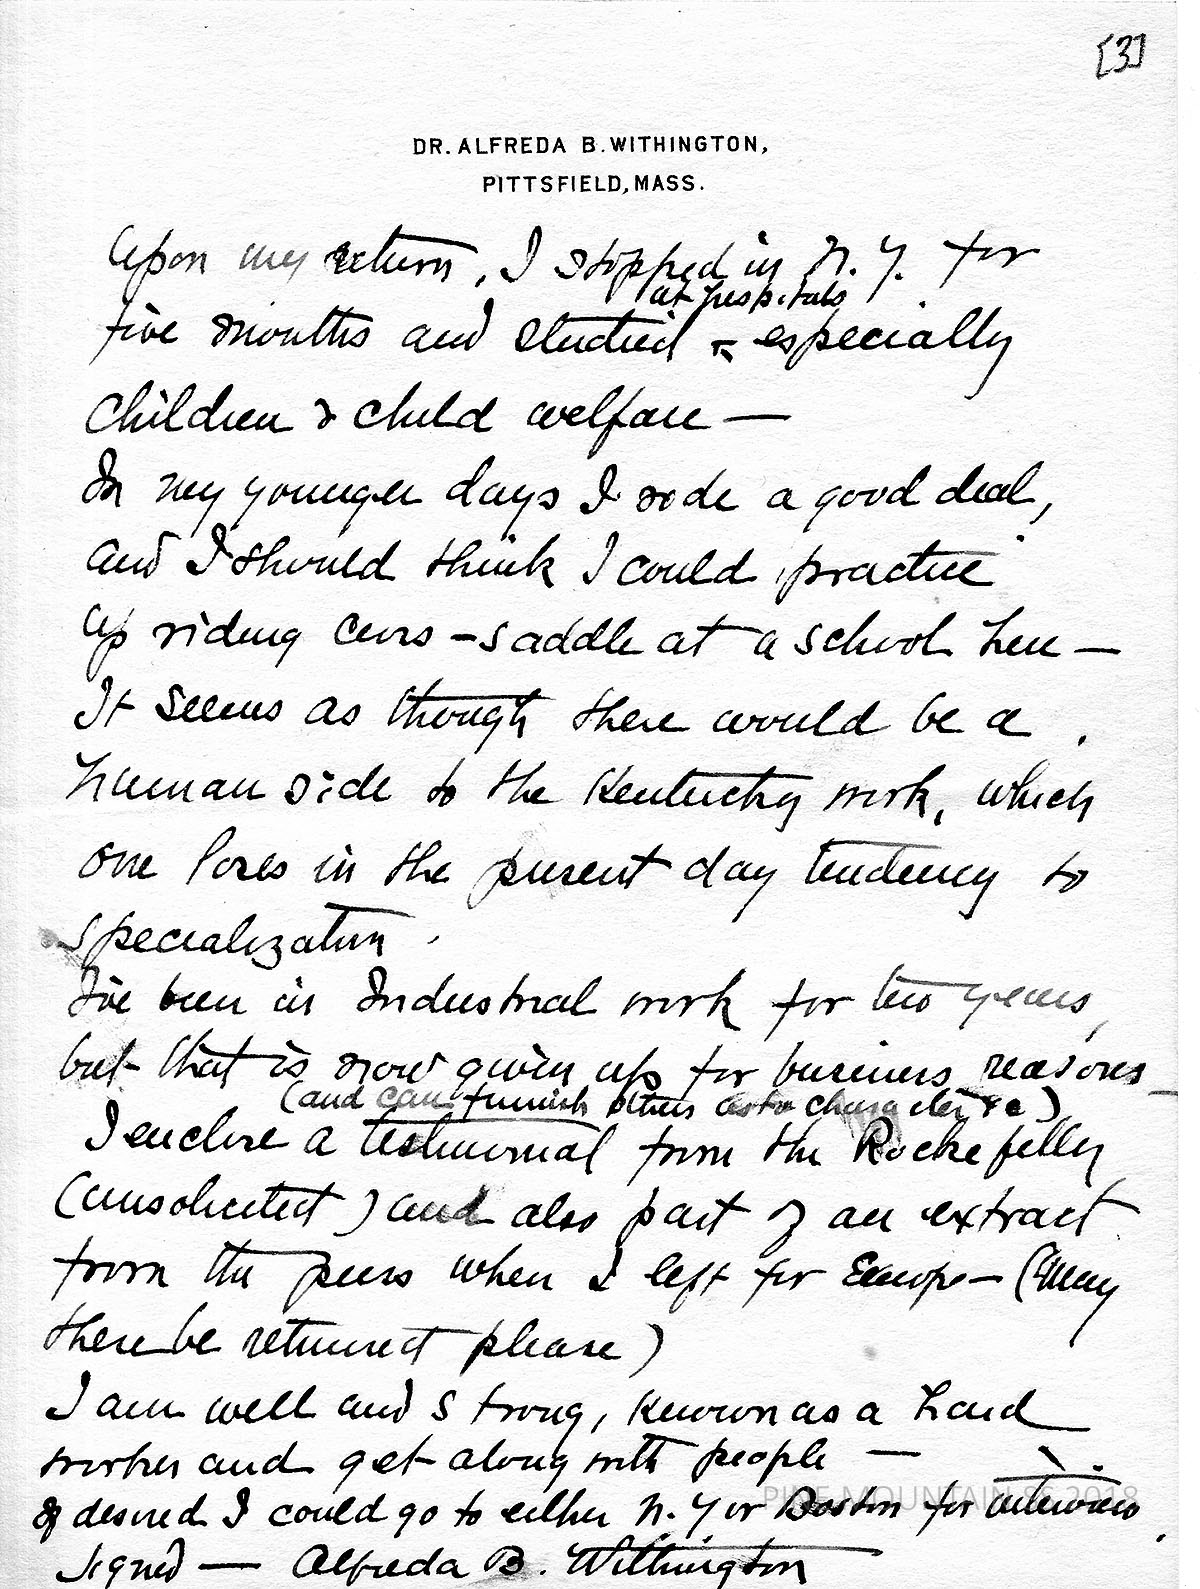 [3]
DR. ALFREDA B. WITHINGTON,
PITTSFIELD, MASS.
Upon my return, I stopped in N. Y. for
at hospitals
five months and studied especially
children & child welfare —
In my younger days I rode a good deal,
and I should think I could practice
up riding cross-saddle at a school here —
It seems as though there would be a
human side to the Kentucky work, which
one loses in the present day tendency to
specialization.
I've been in Industrial work for two years,
but that is now given up for business reasons —
(and can furnish others as to character &c)
I enclose a testimonial from the Rockefeller
(unsolicited) and also part of an extract
from the press when I left for Europe — (May
these be returned please)
I am well and strong, known as a hard
worker and get along with people —
If desired I could go to either N. Y or Boston for interview
Signed — Alfreda B. Withington
PINE MOUNTAIN SS 2018